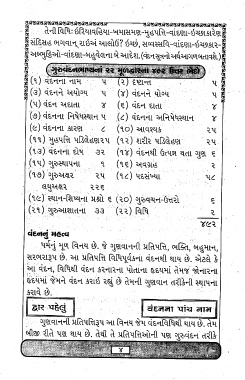 તેની વિધિઃ ઇરિયાવહિયા-ખમાસમણ-મુહપત્તિ-વાંદણા-ઇચ્છકારેણ
સંદિસહ ભગવાન્ રાઇઅં આલોઉં? ઇચ્છં, સવ્વસ્સવિ-વાંદણા-ઇચ્છકાર-
અબ્ભુટ્ઠિઓ-વાંદણા-બહુવેલના બે આદેશ.
ગુરુવંદનભાષ્યના ૨૨ મૂળદ્વારના ૪૯૨ ઉત્તર ભેદો
(૧) વંદનના નામ ૫ (૨) દૃષ્ટાન્ત ૫
(૩) વંદનને અયોગ્ય ૫ (૪) વંદનને યોગ્ય ૫
(૫) વંદન અદાતા ૪ (૬) વંદન દાતા ૪
(૭) વંદનના નિષેધસ્થાન ૫ (૮) વંદનના અનિષેધસ્થાન ૪
(૯) વંદનના કારણ ૮ (૧૦) આવશ્યક ૨૫
(૧૧) મુહપત્તિ પડિલેહણ ૨૫ (૧૨) શરીર પડિલેહણ ૨૫
(૧૩) વંદનના દોષ ૩૨ (૧૪) વંદનથી ઉત્પન્ન થતા ગુણ ૬
(૧૫) ગુરુસ્થાપના ૧ (૧૬) અવગ્રહ ૨
(૧૭) ગુરુઅક્ષર ૨૫ (૧૮) પદસંખ્યા ૫૮
લઘુઅક્ષર ૨૨૬
(૧૯) સ્થાન-શિષ્યના પ્રશ્નો ૬ (૨૦) ગુરુવચન-ઉત્તરો ૬
(૨૧) ગુરુઆશાતના ૩૩ (૨૨) વિધિ ૨
૪૯૨
વંદનનું મહત્વ
ધર્મનું મૂળ વિનય છે. જે ગુણવાનની પ્રતિપત્તિ, ભક્તિ, બહુમાન,
સરભરારૂપ છે. આ પ્રતિપત્તિ વિધિપૂર્વકના વંદનથી થાય છે. એટલે કે
આ વંદન, વિધિથી વંદન કરનારના પોતાના હૃદયમાં તેમજ જોનારના
હૃદયમાં જેમને વંદન કરાઈ રહ્યું છે તેમની ગુણવાન તરીકેની સ્થાપના
કરાવે છે.
દ્વાર પહેલું વંદનના પાંચ નામ
ગુણવાનની પ્રતિપત્તિરૂપ આ વિનય જેમ વંદનવિધિથી થાય છે. તેમ
બીજી રીતે પણ થાય છે. તેથી તે પ્રતિપત્તિઓની પણ ગુરુવંદન તરીકે
૪